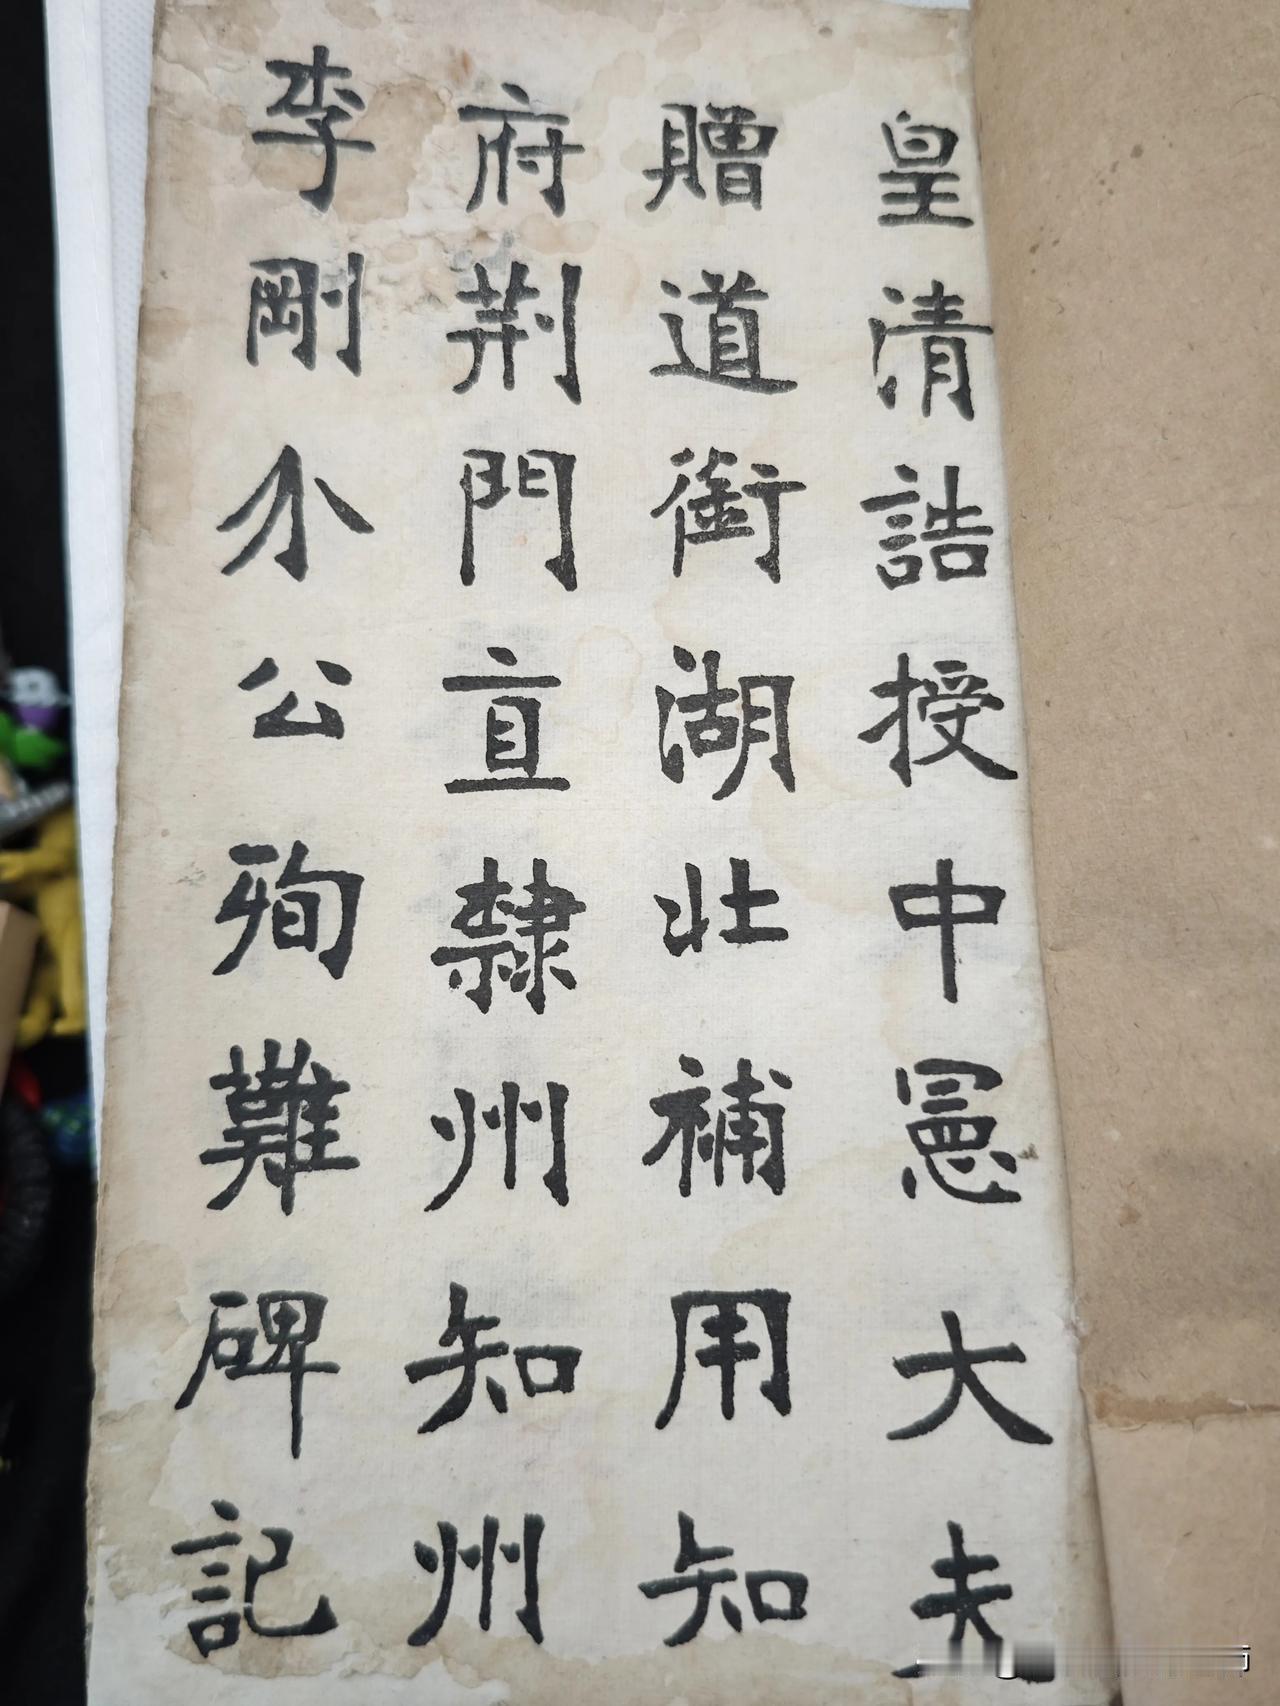 皇清誥授中憲大夫
贈道銜湖北補用知
府荆門直隸州知州
李剛介公殉難碑記